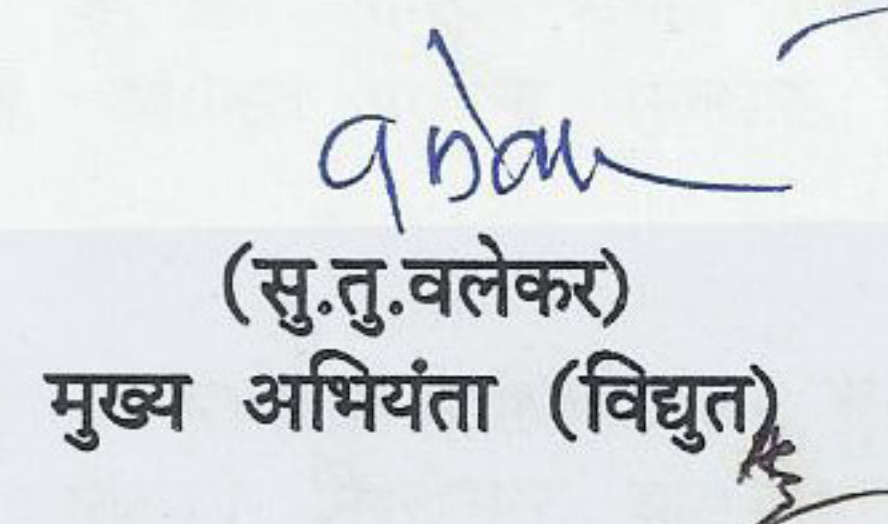 (सु.तु.वलेकर)
मुख्य अभियंता (विद्युत)